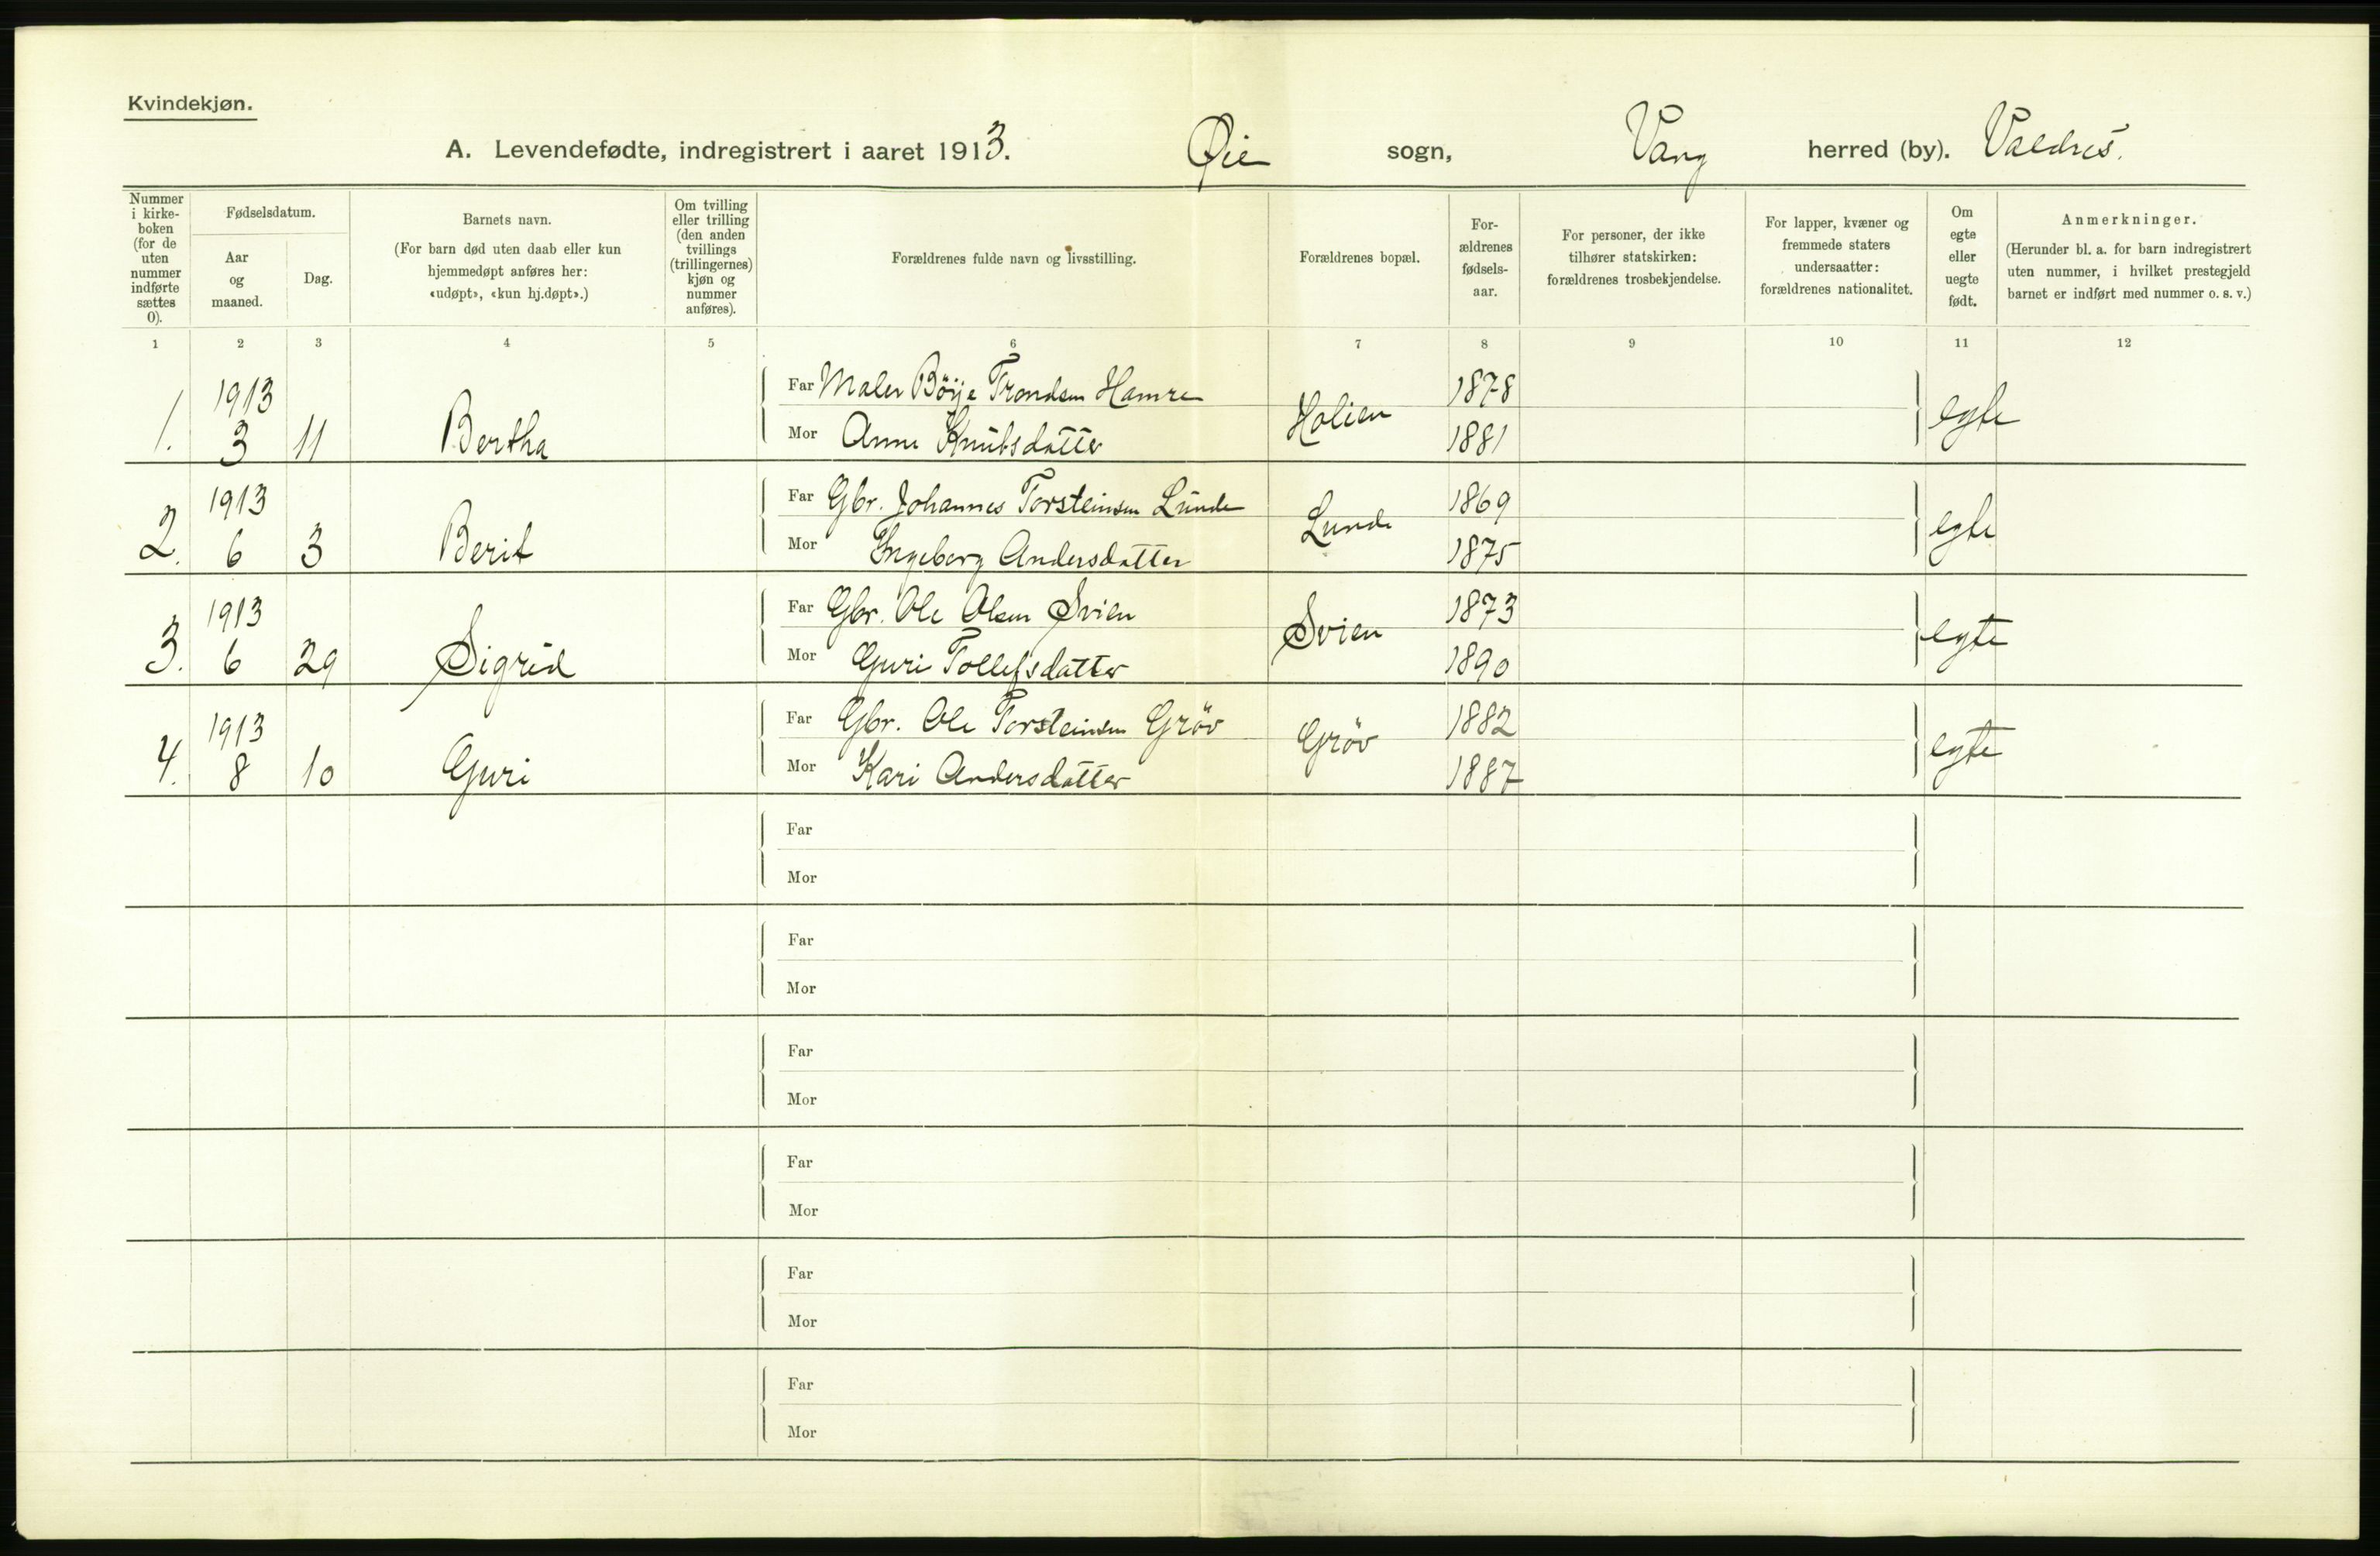 Kvindekjøn.
A. Levendefødte, indregistrert i aaret 1913. Øie sogn, Vang herred (by). Valdres.
Nummer i kirke-boken (for de uten nummer indførte sættes 0).
Fødselsdatum.
Aar og maaned.
Dag.
Barnets navn.
(For barn død uten daab eller kun hjemmedøpt anføres her: «udøpt», «kun hj.døpt».)
Om tvilling eller trilling (den anden tvillings (trillingernes) kjøn og nummer anføres).
Forældrenes fulde navn og livsstilling.
Forældrenes bopæl.
For-ældrenes fødsels-aar.
For personer, der ikke tilhører statskirken: forældrenes trosbekjendelse.
For lapper, kvæner og fremmede staters undersaatter: forældrenes nationalitet.
Om egte eller uegte født.
Anmerkninger.
(Herunder bl. a. for barn indregistrert uten nummer, i hvilket prestegjeld barnet er indført med nummer o. s. v.)
1 2 3 4 5 6 7 8 9 10 11 12
1. 1913 3 11 Bertha Far Maler Börje Trondsen Hamre Holien 1878 egte
Mor Anne Knutsdatter 1881
2. 1913 6 3 Berit Far Gbr. Johannes Torsteinsen Lunde Lunde 1869 egte
Mor Ingeborg Andersdatter 1875
3. 1913 6 29 Sigrid Far Gbr. Ole Olsen Svien Svien 1873 egte
Mor Guri Tollefsdatter 1890
4. 1913 8 10 Guri Far Gbr. Ole Torsteinsen Gröv Gröv 1882 egte
Mor Kari Andersdatter 1887
Far
Mor
Far
Mor
Far
Mor
Far
Mor
Far
Mor
Far
Mor